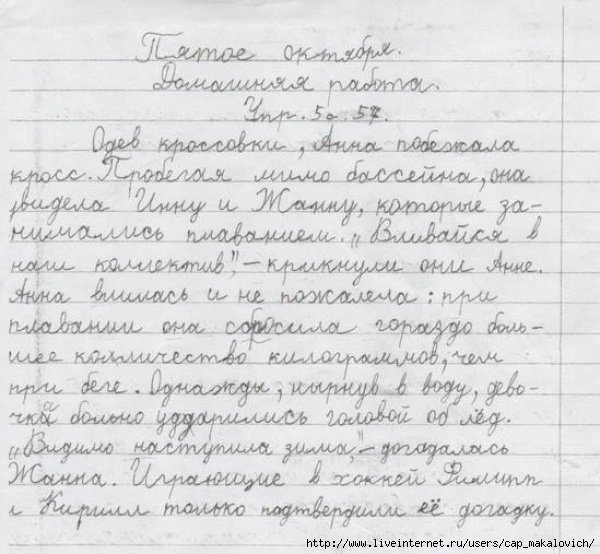 Пятое октября.
Домашняя работа.
Упр. 5 с. 57.
Одев кроссовки, Анна побежала
кросс. Пробегая мимо бассейна, она
увидела Инну и Жанну, которые за-
нимались плаванием. „Вливайся в
наш коллектив", – крикнули они Анне.
Анна влилась и не пожалела: при
плавании она сбросила гораздо боль-
шее количество килограммов, чем
при беге. Однажды, нырнув в воду, дево-
чка больно ударились головой об лёд.
„Видимо наступила зима", – догадалась
Жанна. Играющие в хоккей Филипп
и Кирилл только подтвердили её догадку.
http://www.liveinternet.ru/users/cap_makalovich/